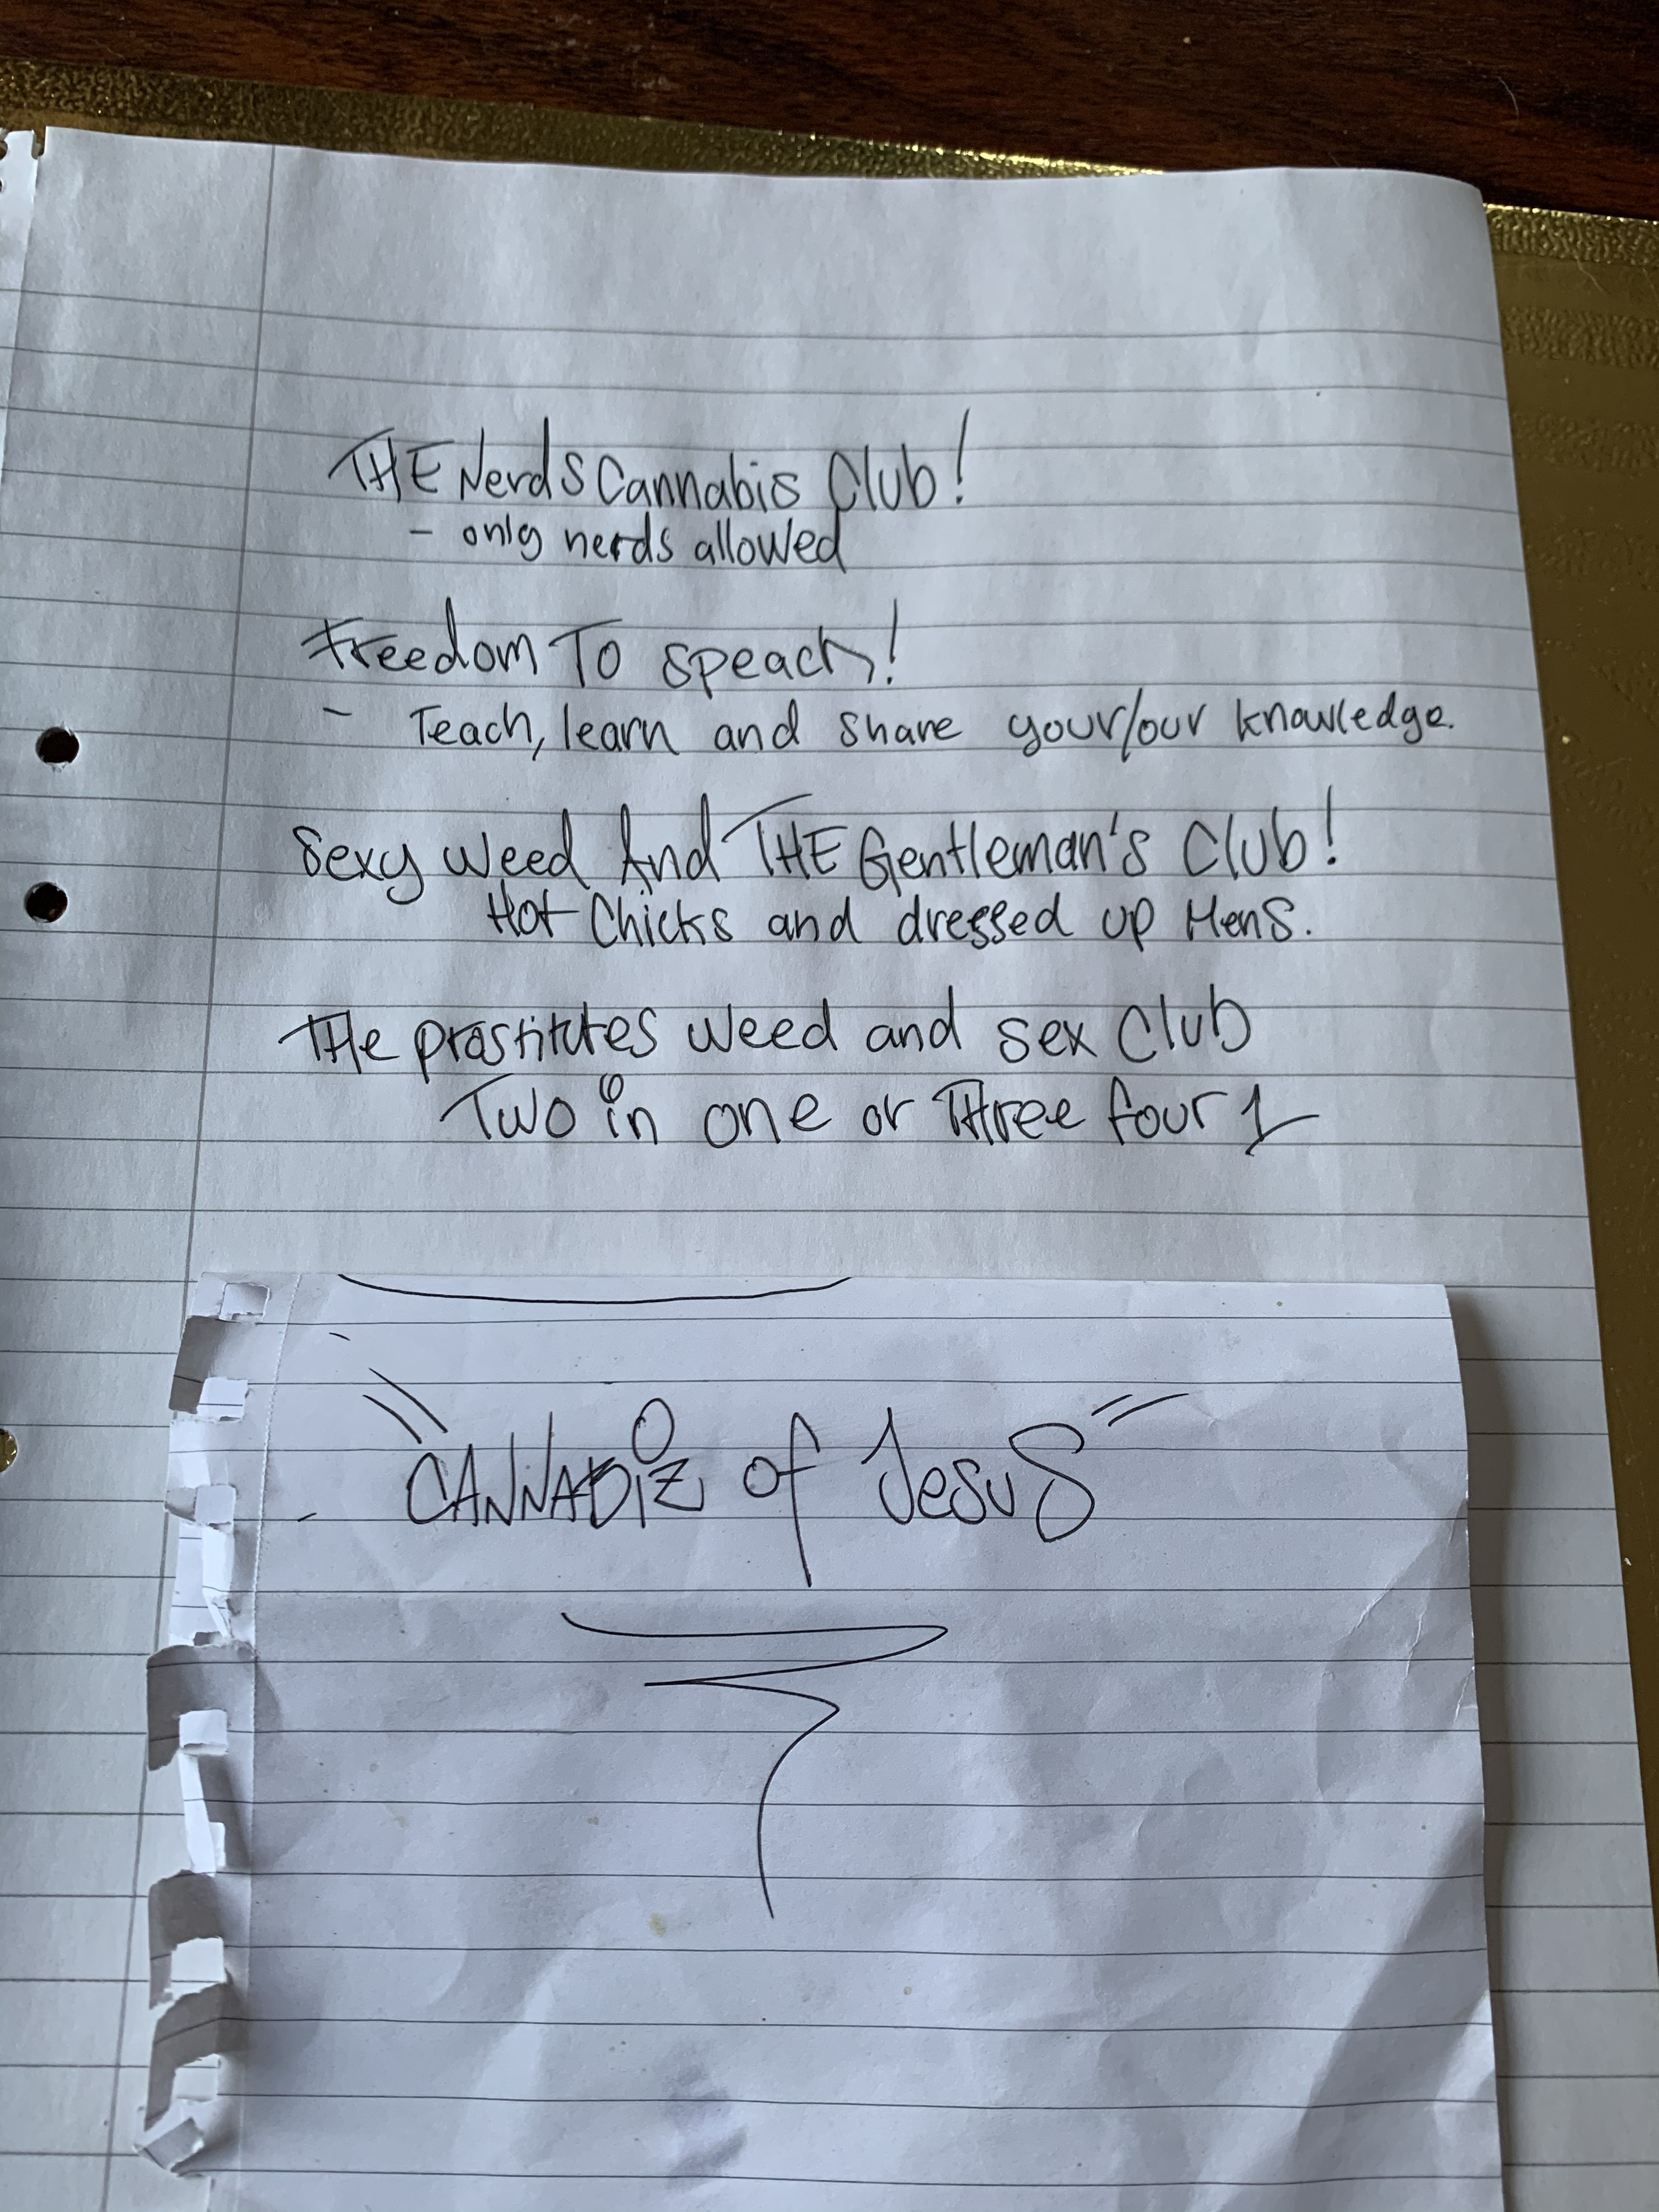 THE Nerds Cannabis Club!
- only nerds allowed
Freedom To speach!
- Teach, learn and share your/our knowledge.
Sexy weed And THE Gentleman's Club!
Hot Chicks and dressed up Mens.
THe prostitutes weed and sex Club
Two in one or Three four 1
"CANNABiZ of JesuS"